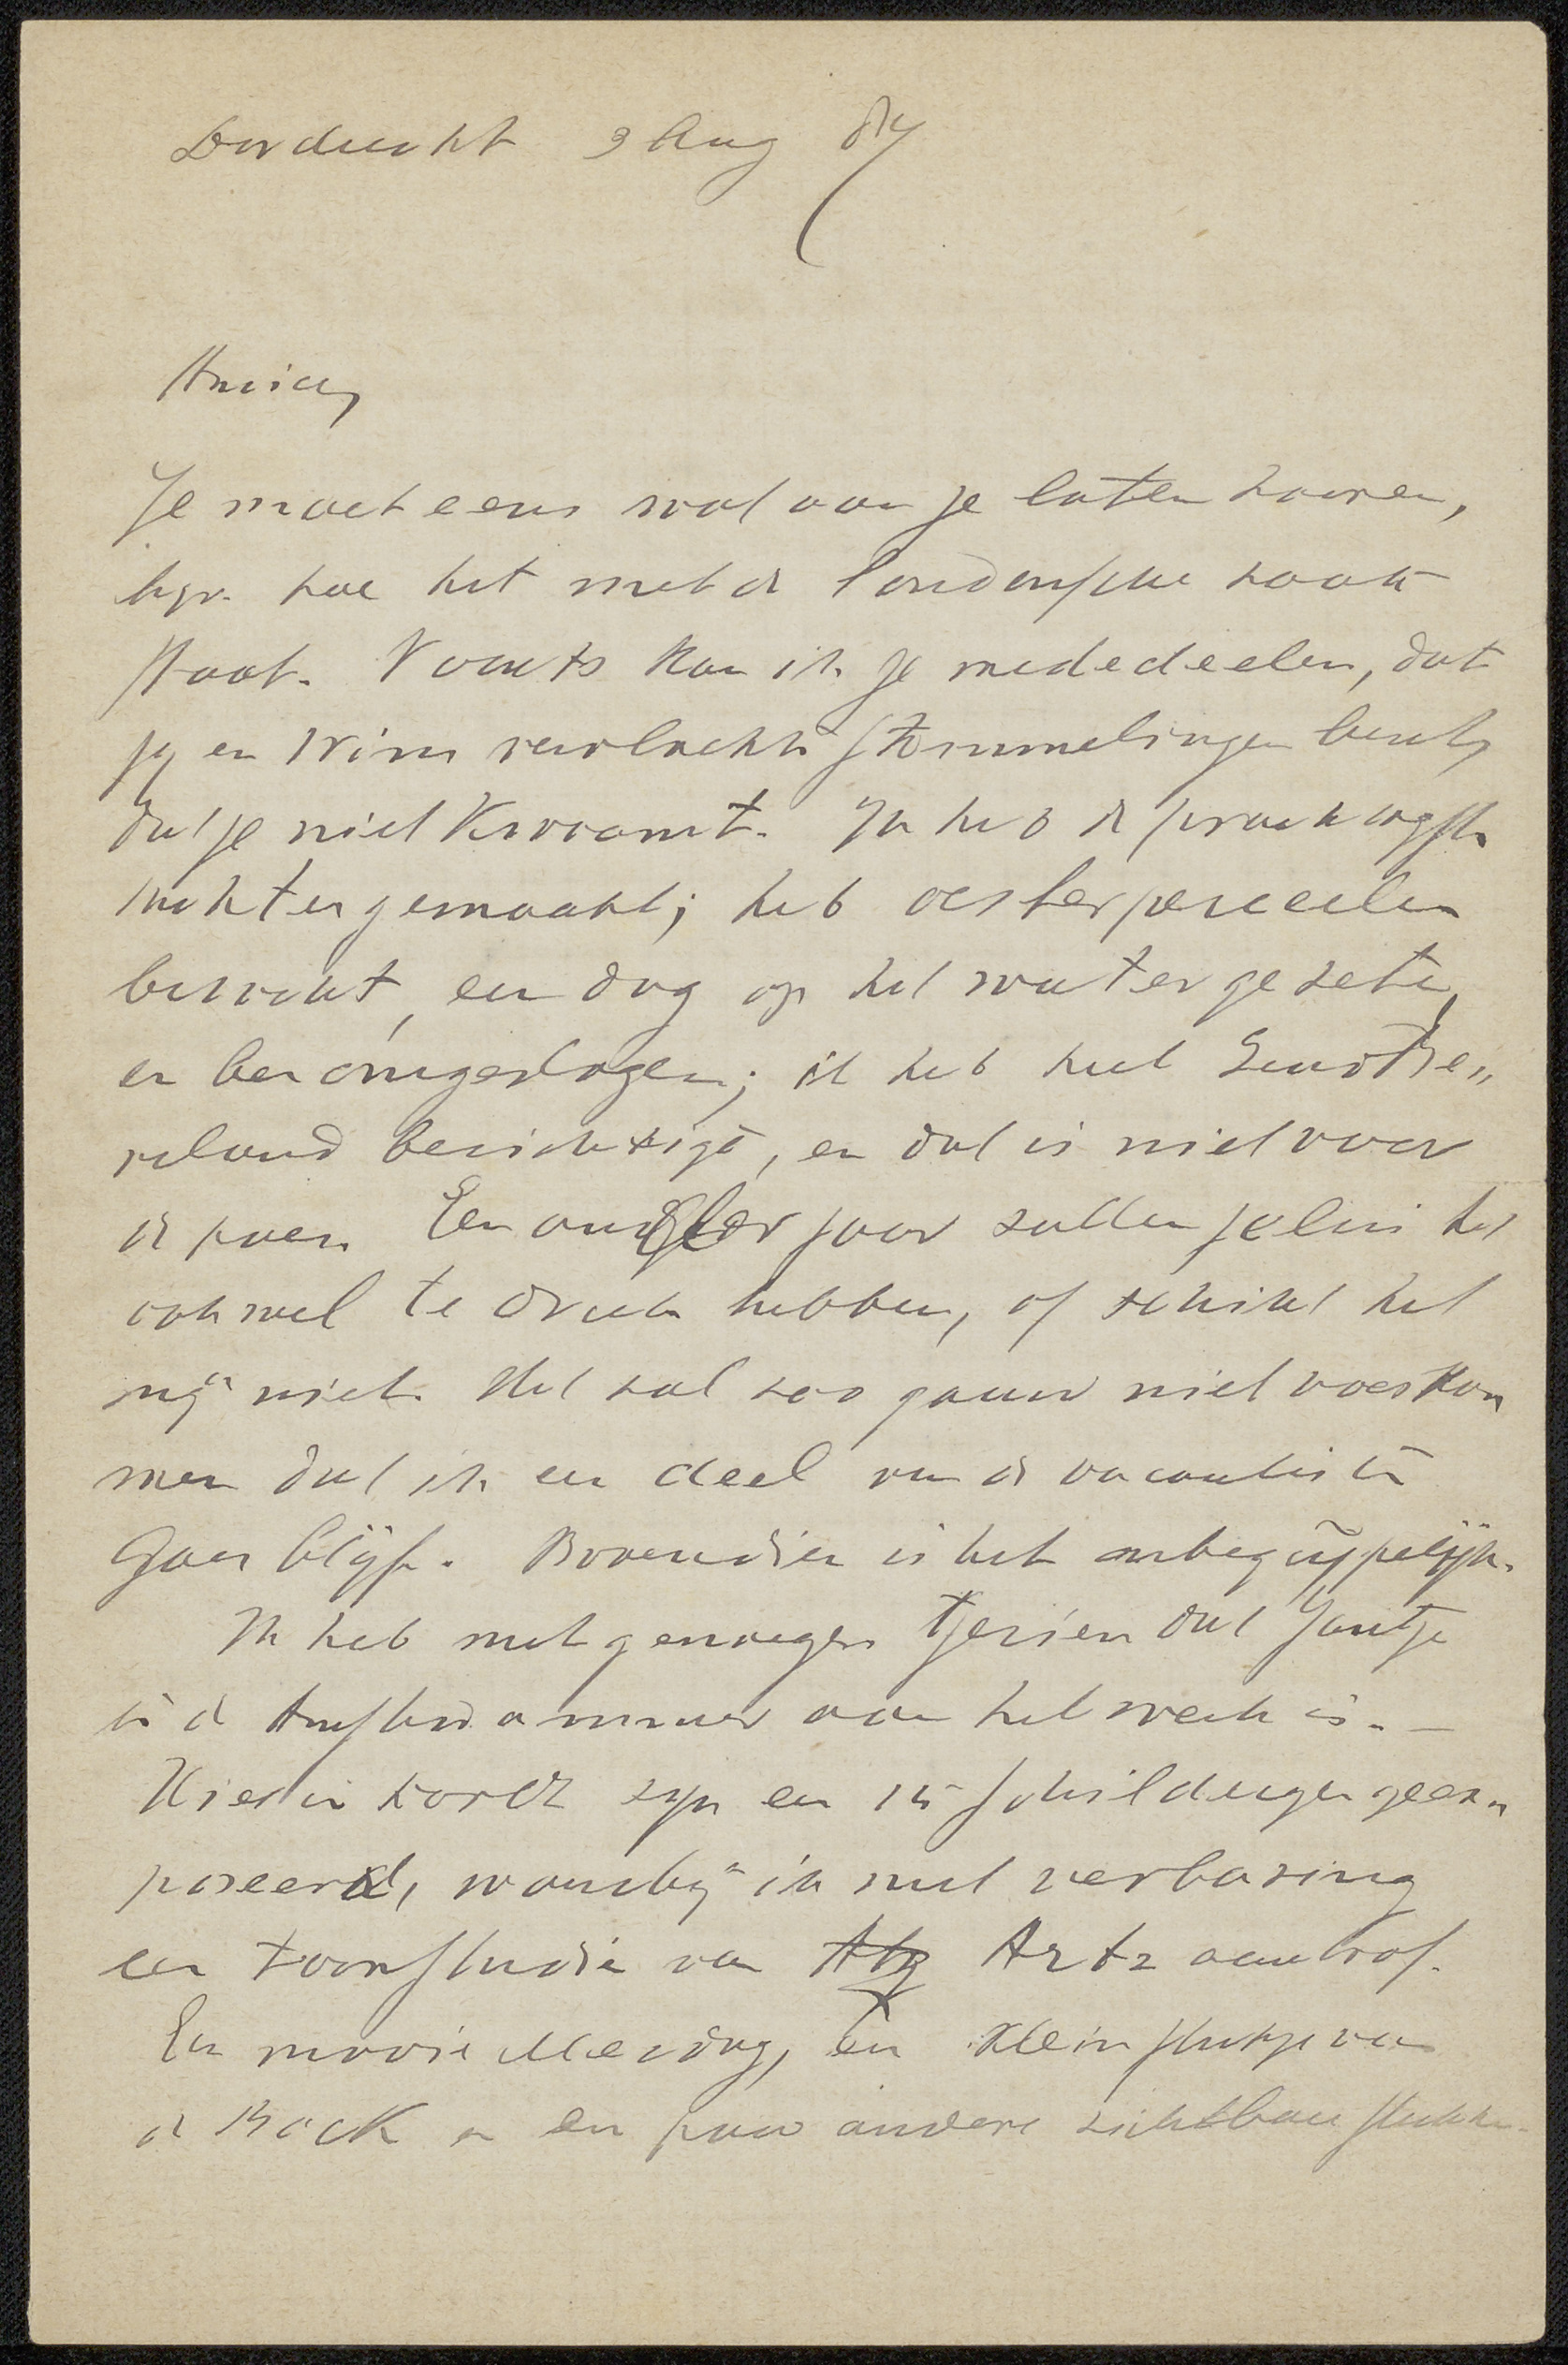 Dordrecht 9 Aug 84
Amice,
Je moet eens wat van je laten hooren,
bijv. hoe het met de Londensche zaak
staat. Voorts kan ik je mededeelen, dat
jij en Wim vervloekte stommelingen bent,
dat je niet kwaamt. Ik heb de prachtigste
tochten gemaakt; heb oesterperceelen
bezocht, een dag op het water gezeten,
en ben omgeslagen; ik heb heel Zuidbe„
veland bezichtigd, en dat is niet voor
de poes. Een ander jaar zullen jelui het
ook wel te druk hebben, of schikt het
mij niet. Het zal zoo gauw niet voorkom
men dat ik een deel van de vacantie te
Goes blijf. Bovendien is het onbegrijpelijk.
Ik heb met genoegen gezien dat Jantje
in d Amsterdammer aan het werk is. —
Hier in Dordt zijn een 15 schilderijen geex„
poseerd, waarbij ik met verbazing
een toonstudie van Artz aantrof.
Een mooie Mesdag, een klein stukje van
de Bock en een paar andere zichtbare stukken.